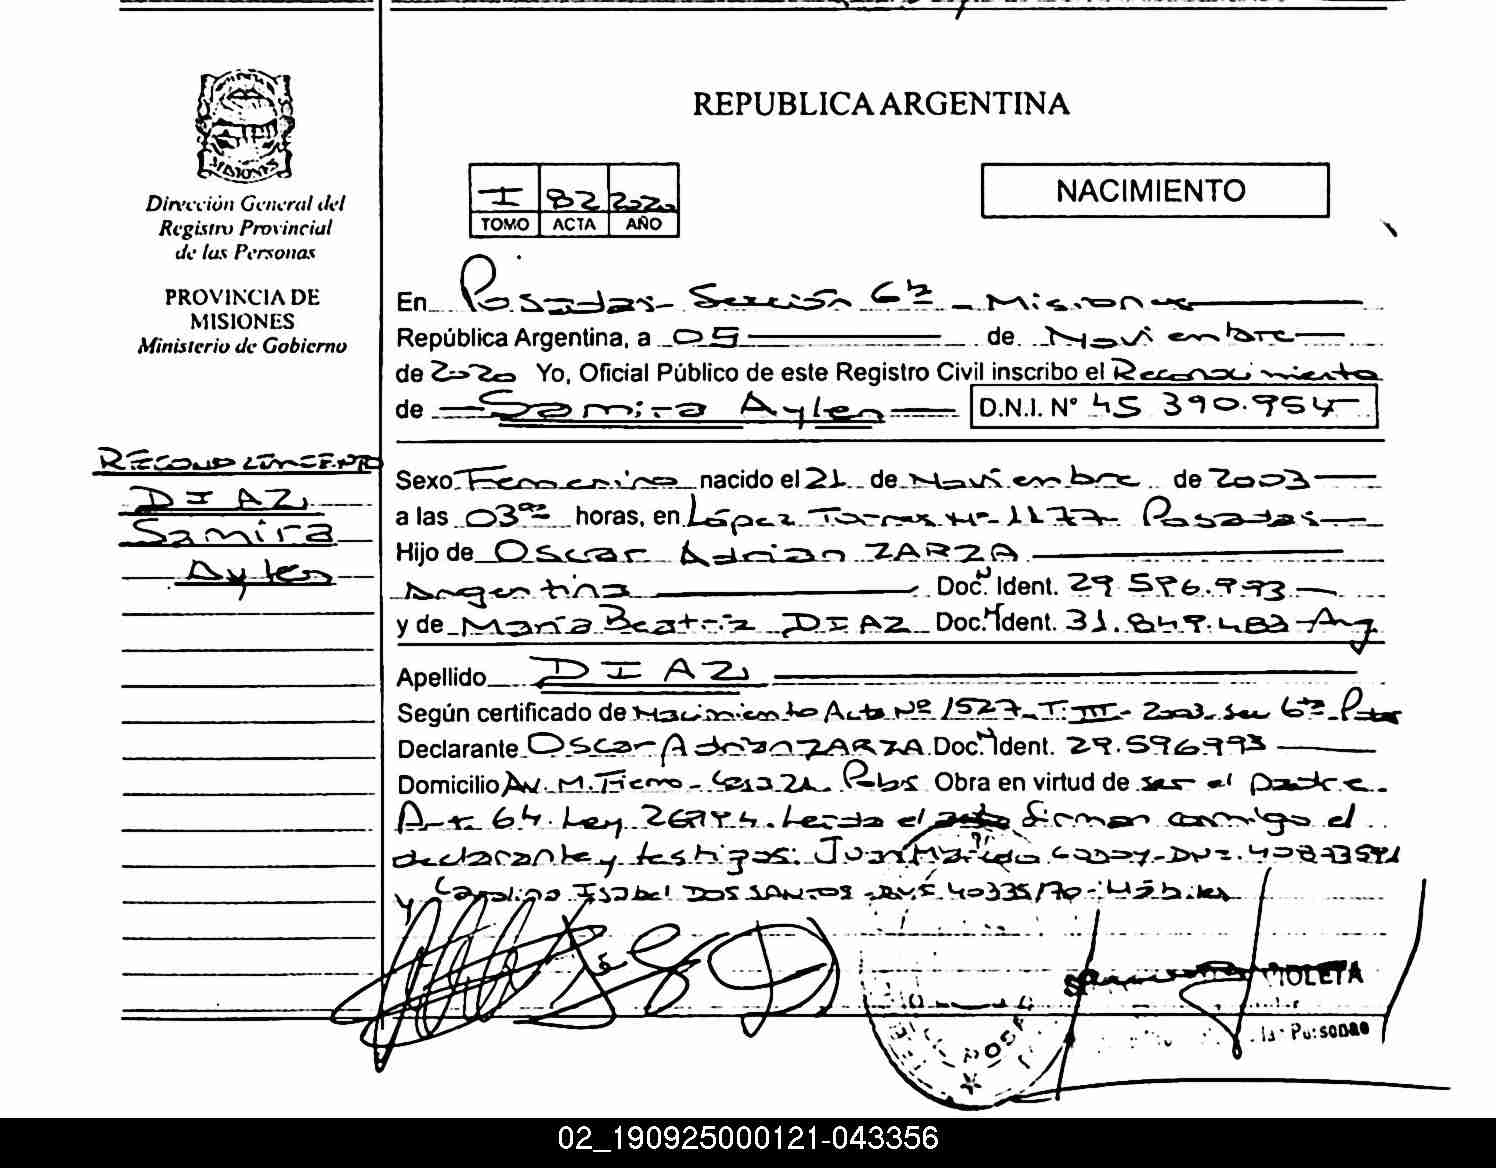 REPUBLICA ARGENTINA
MISIONES
Dirección General del
Registro Provincial
de las Personas
PROVINCIA DE
MISIONES
Ministerio de Gobierno
I 82 2020
TOMO ACTA AÑO
NACIMIENTO
En Posadas - Sección 6ta - Misiones
República Argentina, a 05 de Noviembre
de 2020 Yo, Oficial Público de este Registro Civil inscribo el Reconocimiento
de Samira Aylen D.N.I. N° 45 390.954
RECONOCIMIENTO
DIAZ
Samira
Aylen
Sexo Femenino nacido el 21 de Noviembre de 2003
a las 03 horas, en López Torres Nº 1177 Posadas
Hijo de Oscar Adrian ZARZA
Argentina Doc. Ident. 29.596.993
y de María Beatriz DIAZ Doc. Ident. 31.849.483 Arg
Apellido DIAZ
Según certificado de Nacimiento Acta Nº 1527 T. III - 2003 sec 6ta
Declarante Oscar Adrian ZARZA Doc. Ident. 29.596.993
Domicilio Av. M. Fierro Obra en virtud de ser el padre.
Art. 64. Ley 26994. Leída el acta firman conmigo el
declarante y testigos: Juan Marcelo GODOY - DNI.
y Carolina Isabel DOS SANTOS - DNI 40335170 - Hábiles
VIOLETA
las Personas
02_190925000121-043356